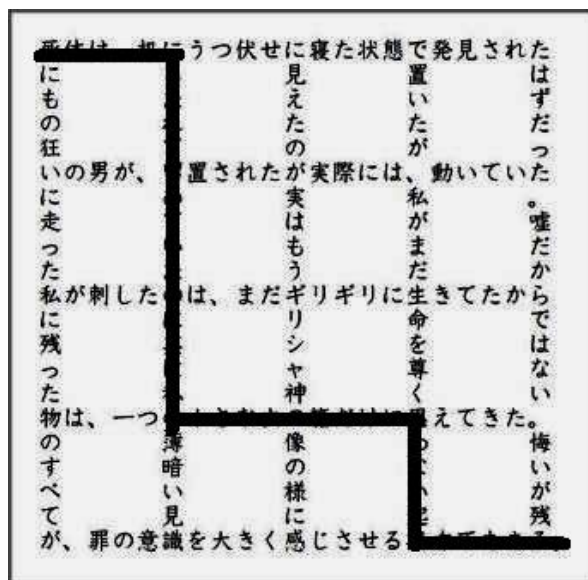 うつ伏せに寝た状態で発見された
いの男が、置されたが実際には、動いていた
私が刺したは、まだギリギリに生きてたから
物は、一つえてきた。
が、罪の意識を大きく感じさせる
にもの狂いに走った私に残った物のすべてが
薄暗い見識
に見えたのが実はもうギリシャ神像の様に感
で置いたが、私がまだ生命を尊く
たはずだった。嘘だからではない。悔いが残